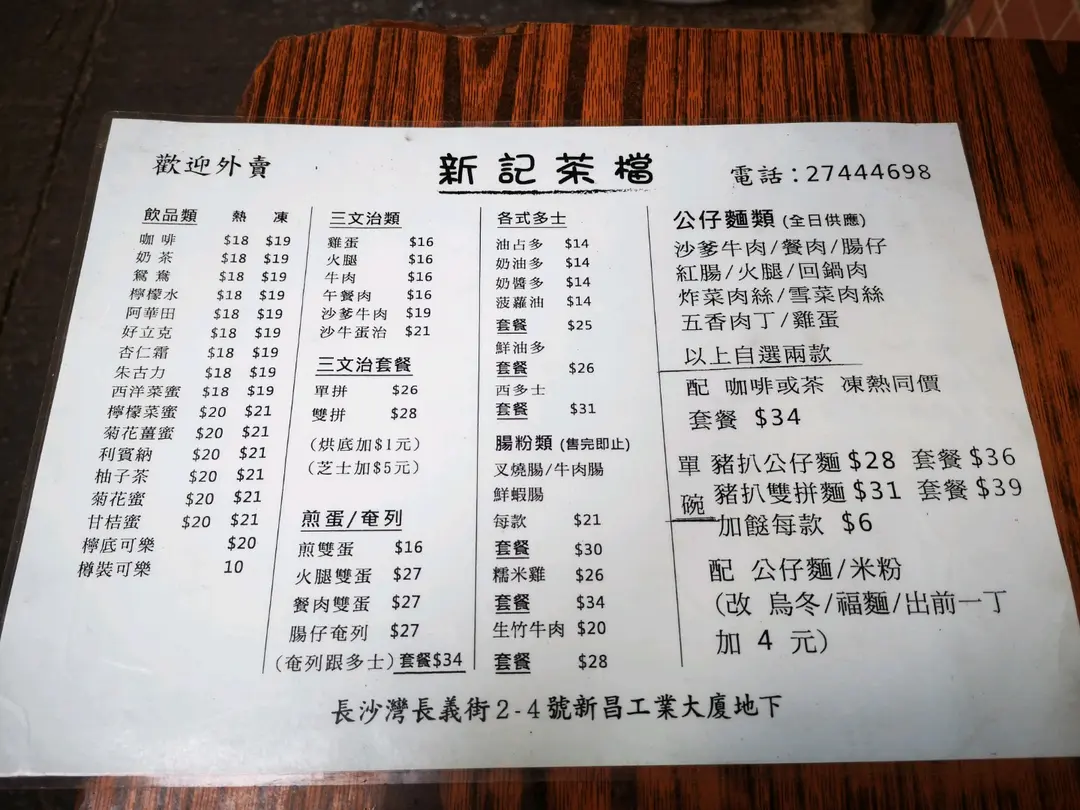 歡迎外賣
新記茶檔
電話：27444698
飲品類 熱 凍
咖啡 $18 $19
奶茶 $18 $19
鴛鴦 $18 $19
檸檬水 $18 $19
阿華田 $18 $19
好立克 $18 $19
杏仁霜 $18 $19
朱古力 $18 $19
西洋菜蜜 $18 $19
檸檬菜蜜 $20 $21
菊花薑蜜 $20 $21
利賓納 $20 $21
柚子茶 $20 $21
菊花蜜 $20 $21
甘桔蜜 $20 $21
檸底可樂 $20
樽裝可樂 10
三文治類
雞蛋 $16
火腿 $16
牛肉 $16
午餐肉 $16
沙爹牛肉 $19
沙牛蛋治 $21
三文治套餐
單拼 $26
雙拼 $28
(烘底加$1元)
(芝士加$5元)
煎蛋/奄列
煎雙蛋 $16
火腿雙蛋 $27
餐肉雙蛋 $27
腸仔奄列 $27
(奄列跟多士) 套餐$34
各式多士
油占多 $14
奶油多 $14
奶醬多 $14
菠蘿油 $14
套餐 $25
鮮油多
套餐 $26
西多士
套餐 $31
腸粉類 (售完即止)
叉燒腸/牛肉腸
鮮蝦腸
每款 $21
套餐 $30
糯米雞 $26
套餐 $34
生竹牛肉 $20
套餐 $28
公仔麵類 (全日供應)
沙爹牛肉/餐肉/腸仔
紅腸/火腿/回鍋肉
炸菜肉絲/雪菜肉絲
五香肉丁/雞蛋
以上自選兩款
配 咖啡或茶 凍熱同價
套餐 $34
單 豬扒公仔麵 $28 套餐 $36
碗 豬扒雙拼麵 $31 套餐 $39
加餸每款 $6
配 公仔麵/米粉
(改 烏冬/福麵/出前一丁
加 4 元)
長沙灣長義街2-4號新昌工業大廈地下